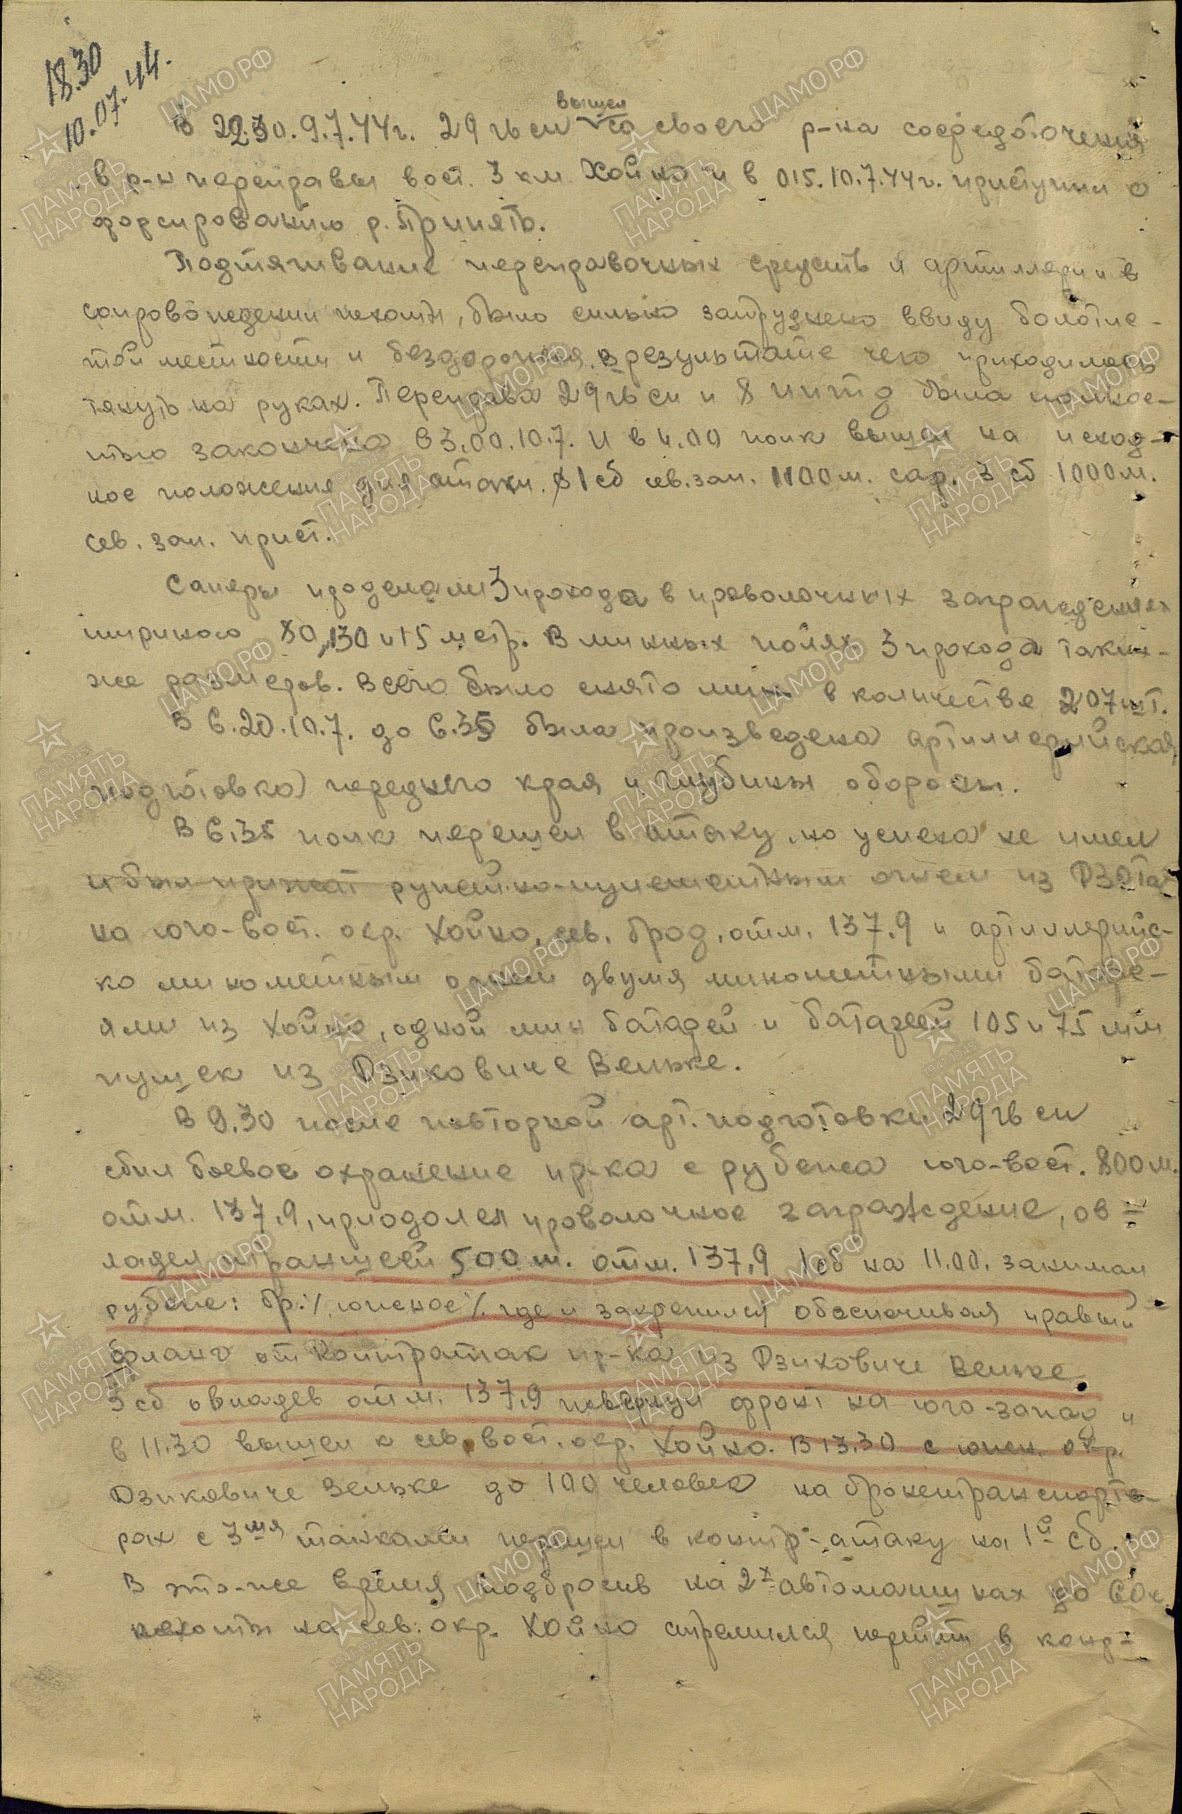 18.30
10.07.44.
вышел
В 22.30. 9.7.44г. 29 гв сп со своего р-на сосредоточения
в р-н переправы вост. 3 км Хойно и в 015.10.7.44г. приступил к
форсированию р. Припять.
Подтягивание переправочных средств и артиллерии в
сопровождении пехоты, было сильно затруднено ввиду болотис-
той местности и бездорожья, в результате чего приходилось
тянуть на руках. Переправа 29 гв сп и 8 была полнос-
тью закончена в 3.00.10.7. И в 4.00 полк вышел на исход-
ное положения для атаки. 1 сб сев. зап. 1100 м. сар. 3 сб 1000 м.
сев. зап. прист.
Саперы проделали 3 прохода в проволочных заграждениях
шириною 80, 130 и 15 метр. В минных полях 3 прохода таких-
же размеров. Всего было снято мин в количестве 207 шт.
В 6.20.10.7. до 6.35 была произведена артиллерийская
подготовка переднего края и глубины обороны.
В 6.35 полк перешел в атаку, но успеха не имел
и был прижат ружейно-пулеметным огнем из ДЗОТа
на юго-вост. окр. Хойно, сев. брод, отм. 137.9 и артиллерийс-
ко минометным огнем двумя минометными батаре-
ями из Хойно, одной мин батарей и батареей 105 и 75 мм
пушек из Дзиковиче Вельке.
В 9.30 после повторной арт. подготовки 29 гв сп
сбил боевое охранение пр-ка с рубежа юго-вост. 800 м.
отм. 137,9, приодолел проволочное заграждение, ов=
ладел траншеей 500 м. отм. 137,9 1сб на 11.00. занимал
рубеже: бр. /. южнее /. где и закрепился обеспечивая правый
фланг от контратак пр-ка из Дзиковиче Вельке.
3 сб овладев отм. 137,9 повернул фронт на юго-запад и
в 11.30 вышел к сев. вост. окр. Хойно. В 13.30 с южн. окр.
Дзиковиче Вельке до 100 человек на бронетранспорте-
рах с 3мя танками перешел в контр-атаку на 1й сб.
В это-же время подбросив на 2х автомашинах до 60ч.
пехоты на сев. окр. Хойно стремился перейти в контр-